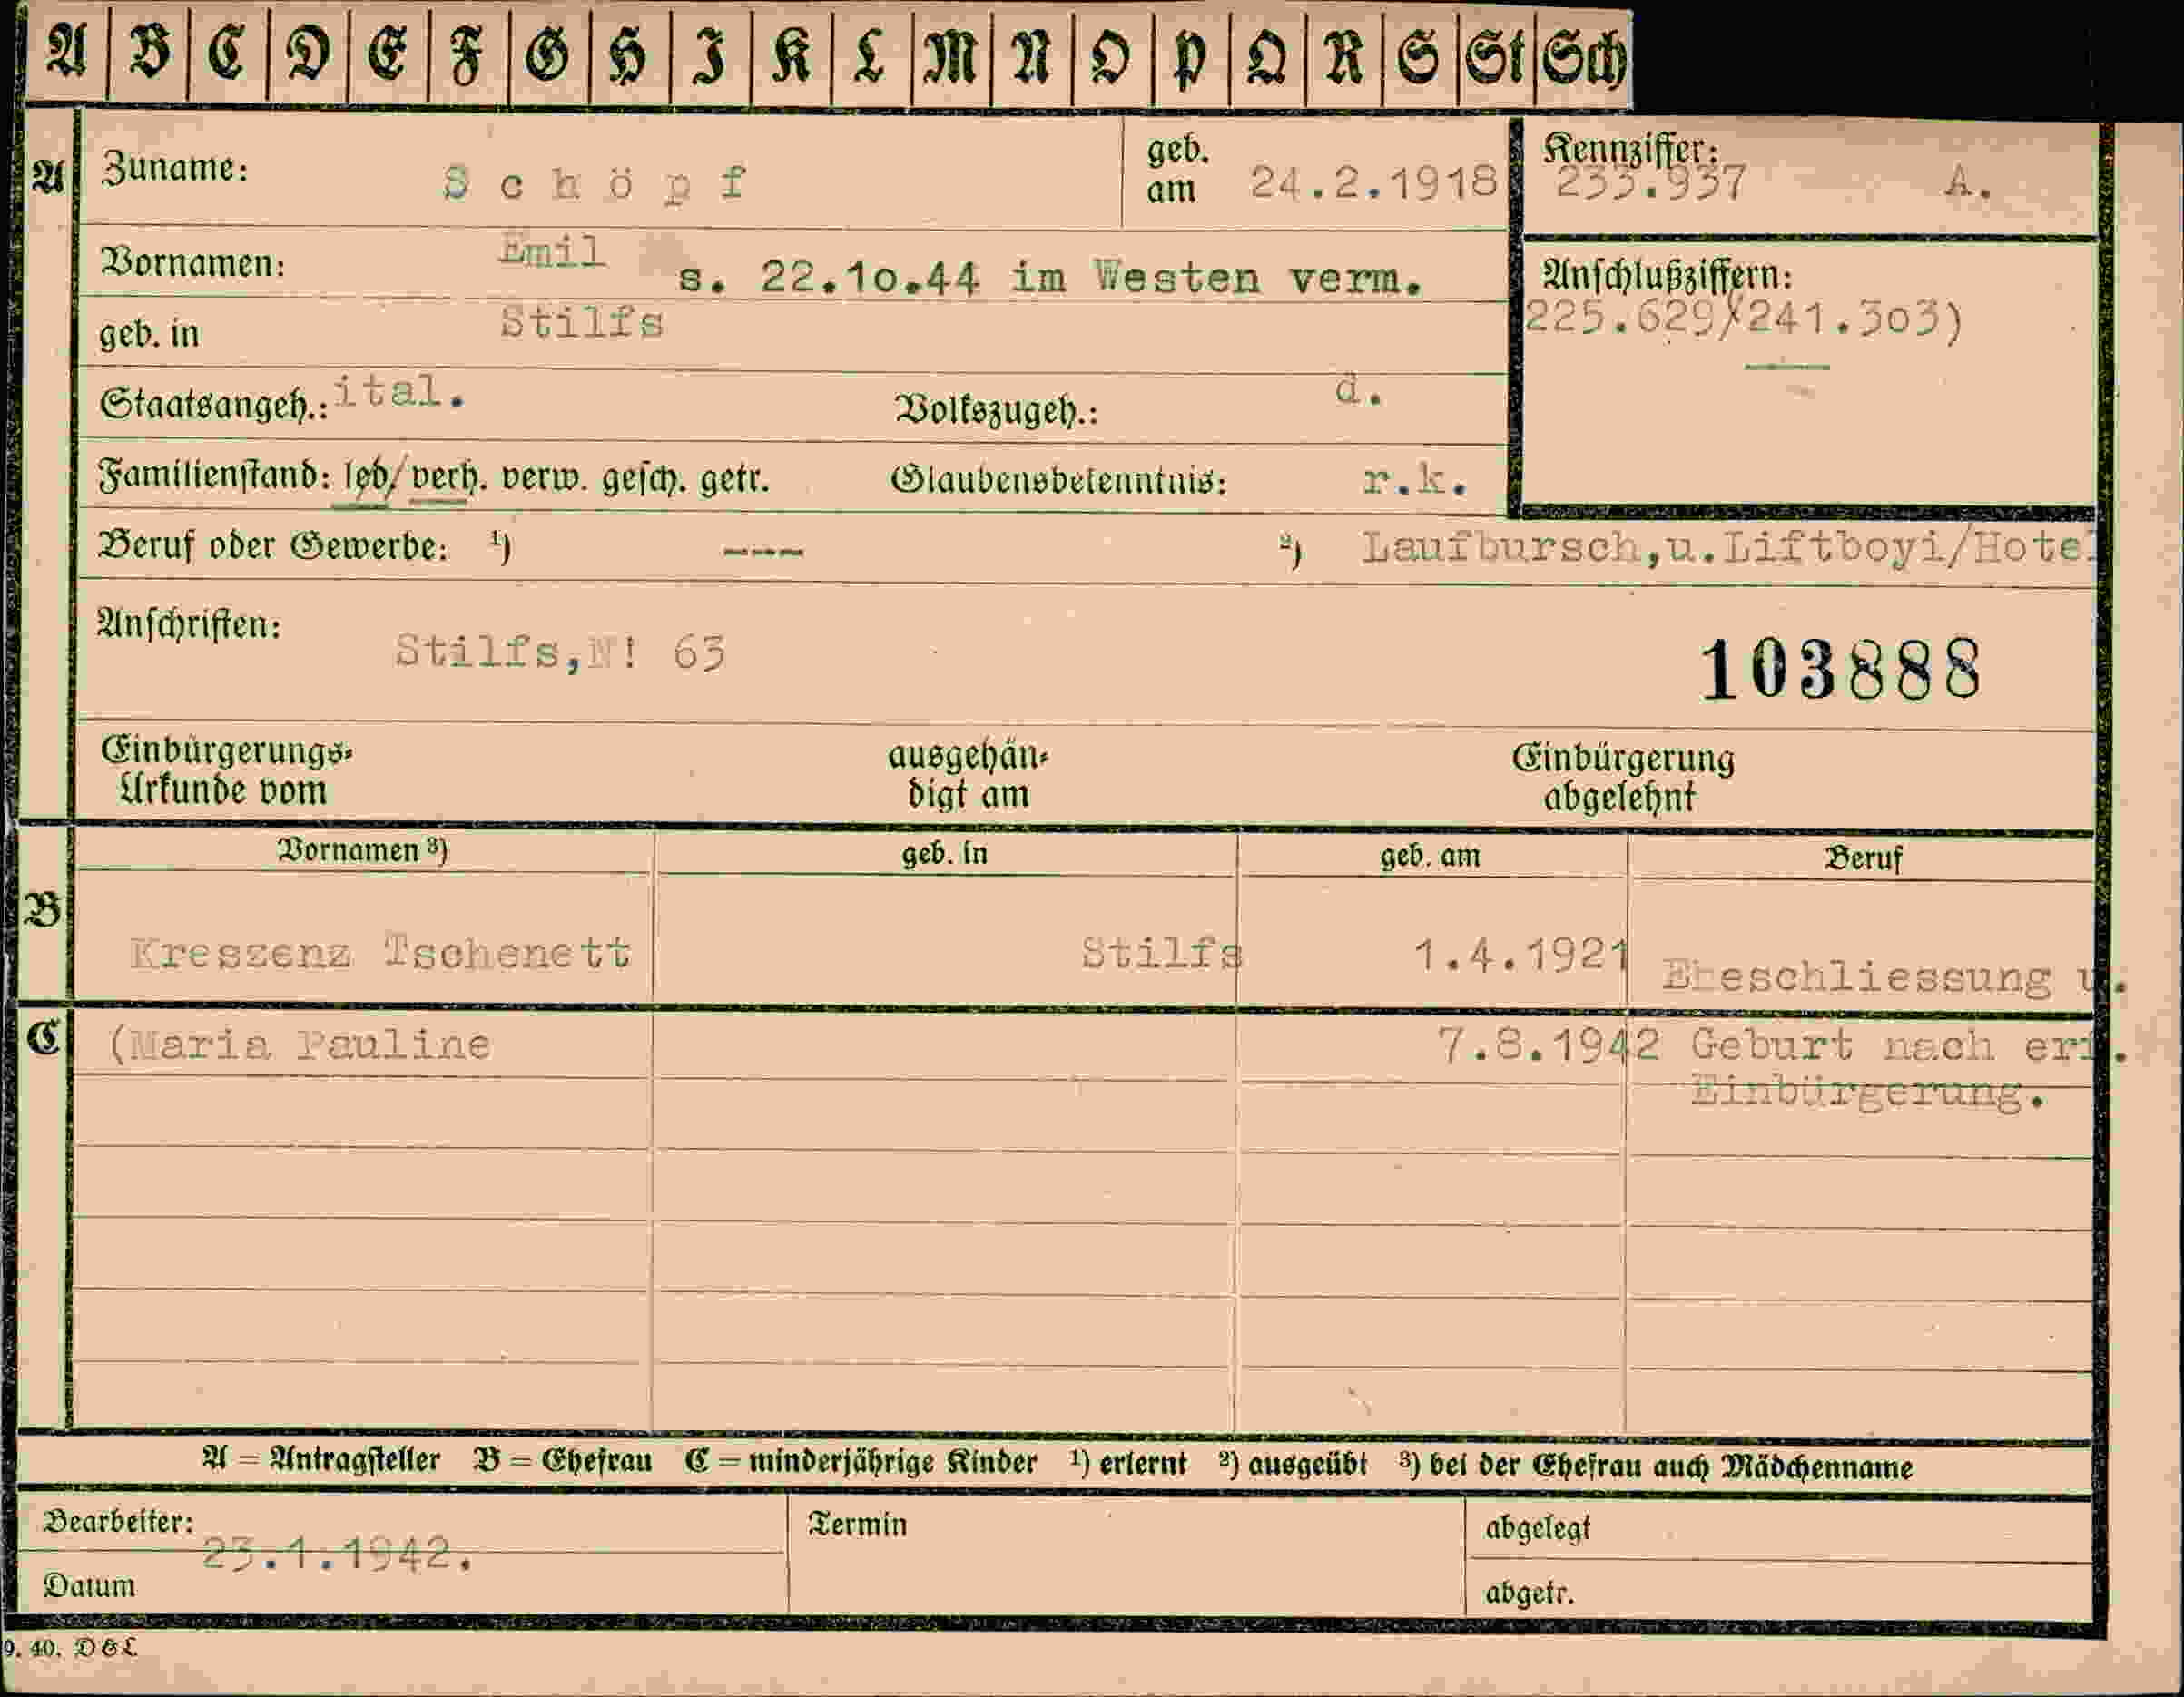 A B C D E F G H I K L M N O P Q R S St Sch
A Zuname: Schöpf geb. am 24.2.1918 Kennziffer: 233.937 A.
Vornamen: Emil s. 22.10.44 im Westen verm. Anschlußziffern:
geb. in Stilfs 225.629/(241.303)
Staatsangeh.: ital. Volkszugeh.: d.
Familienstand: led/verh. verw. gesch. getr. Glaubensbekenntnis: r.k.
Beruf oder Gewerbe: ¹) ---- ²) Laufbursch,u.Liftboyi/Hotel
Anschriften: Stilfs,N! 63
103888
Einbürgerungs-
Urkunde vom
ausgehän-
digt am
Einbürgerung
abgelehnt
Vornamen ³) geb. in geb. am Beruf
B Kreszenz Tschenett Stilfs 1.4.1921 Eheschliessung u.
C (Maria Pauline 7.8.1942 Geburt nach erf.
Einbürgerung.
A = Antragsteller B = Ehefrau C = minderjährige Kinder ¹) erlernt ²) ausgeübt ³) bei der Ehefrau auch Mädchenname
Bearbeiter: Termin abgelegt
23.1.1942.
Datum abgetr.
9. 40. D&L